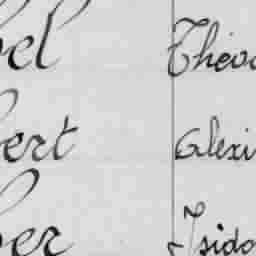 el Théo
ert Alexi
er Isido